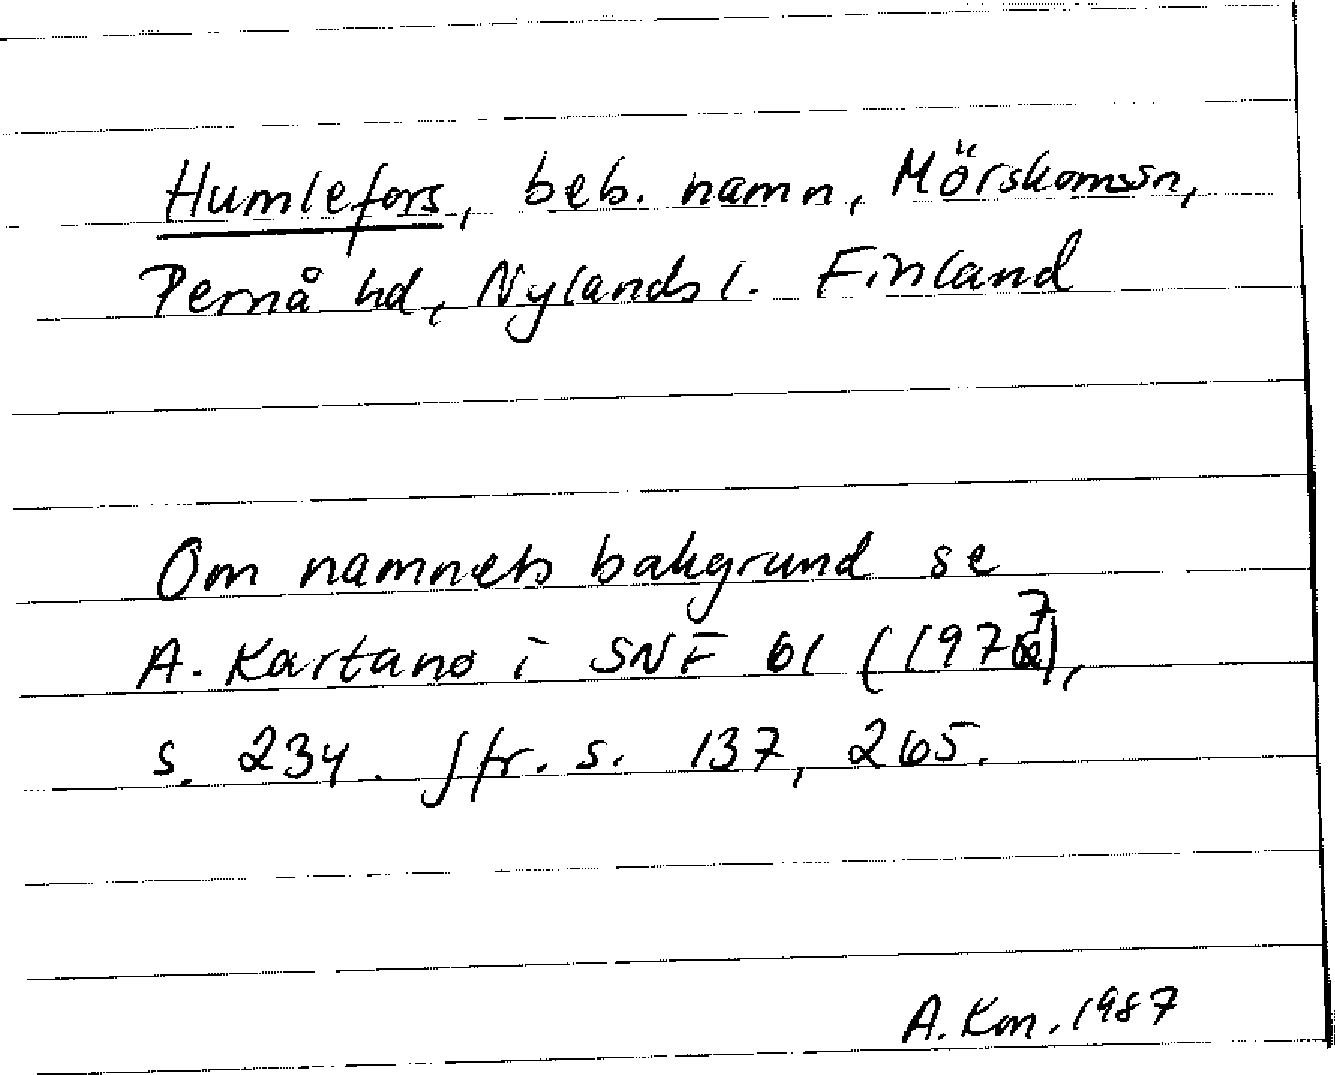 Humlefors, beb. namn, Mörskomssn,
Pernå hd, Nylands l. Finland
Om namnets bakgrund se
A. Kartano i SNF 61 (1977),
s. 234. Jfr. s. 137, 265.
A. Kan. 1987